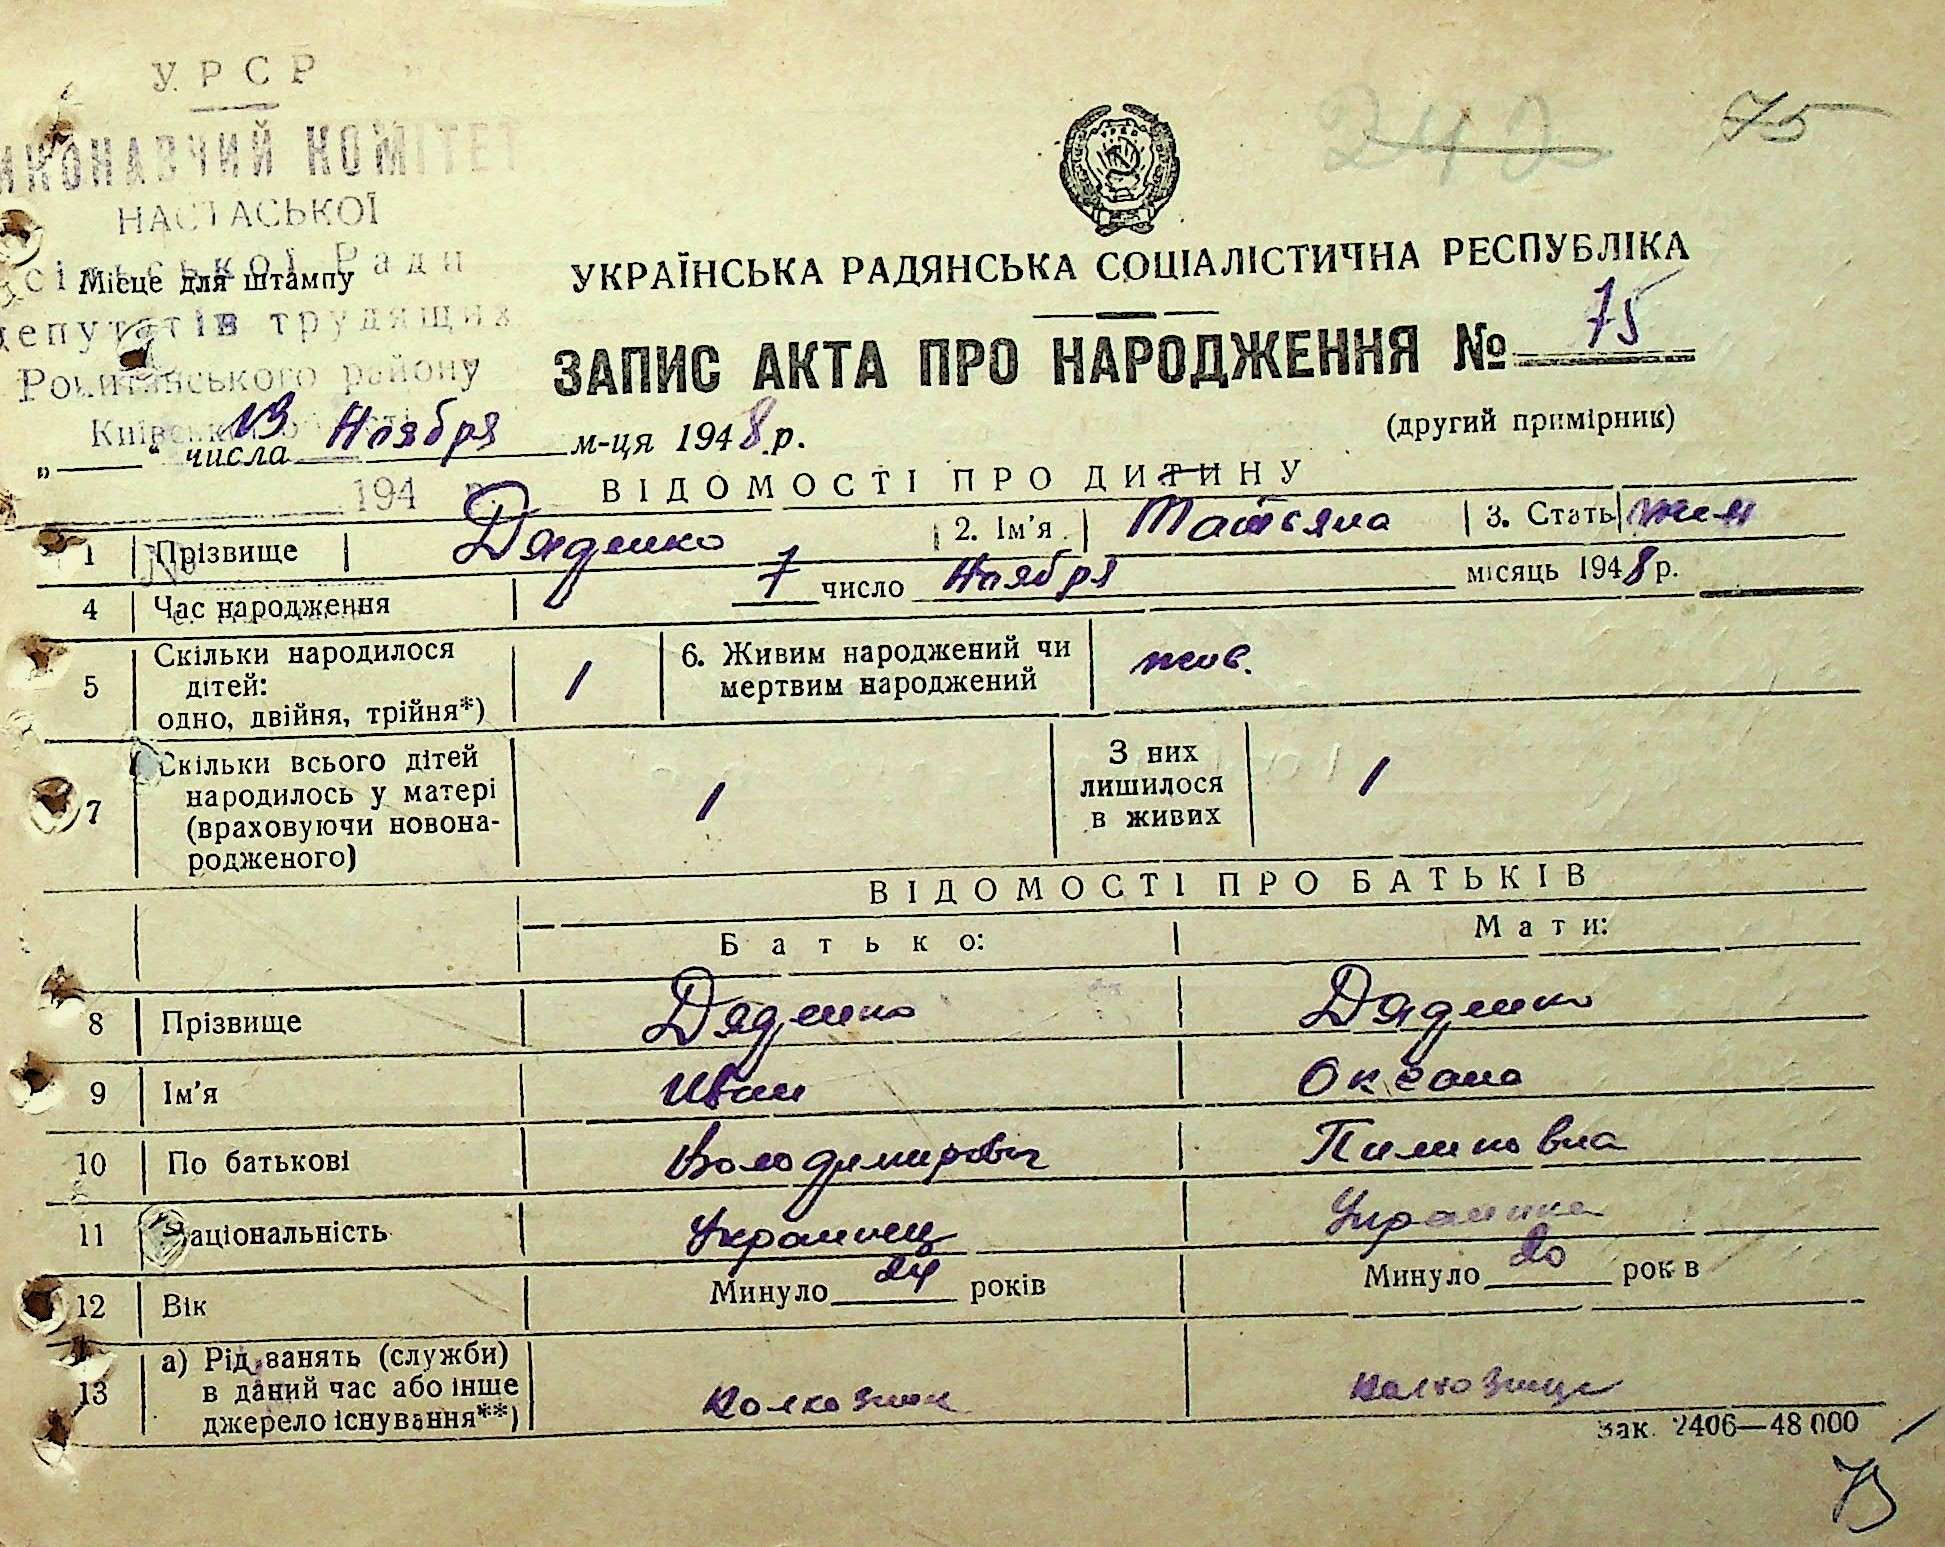 УРСР
ИКОНАВЧИЙ КОМІТЕТ
НАСТАСЬКОЇ
сільської Ради
Місце для штампу
депутатів трудящих
Рокитянського району
Київської
194 р.
242 75
УКРАЇНСЬКА РАДЯНСЬКА СОЦІАЛІСТИЧНА РЕСПУБЛІКА
ЗАПИС АКТА ПРО НАРОДЖЕННЯ № 75
(другий примірник)
„13“ числа Ноября м-ця 1948 р.
ВІДОМОСТІ ПРО ДИТИНУ
1 Прізвище Дяденко 2. Ім'я Татьяна 3. Стать жен
4 Час народження 7 число Ноября місяць 1948 р.
5 Скільки народилося дітей: одно, двійня, трійня*) 1 6. Живим народжений чи мертвим народжений жив.
7 Скільки всього дітей народилось у матері (враховуючи новонародженого) 1 З них лишилося в живих 1
ВІДОМОСТІ ПРО БАТЬКІВ
Батько: Мати:
8 Прізвище Дяденко Дяденко
9 Ім'я Иван Оксана
10 По батькові Володимирович Пилиповна
11 Національність Украинец Украинка
12 Вік Минуло 24 років Минуло 20 рок в
13 а) Рід занять (служби) в даний час або інше джерело існування**) колхозник колхозница
Зак. 2406—48 000
75